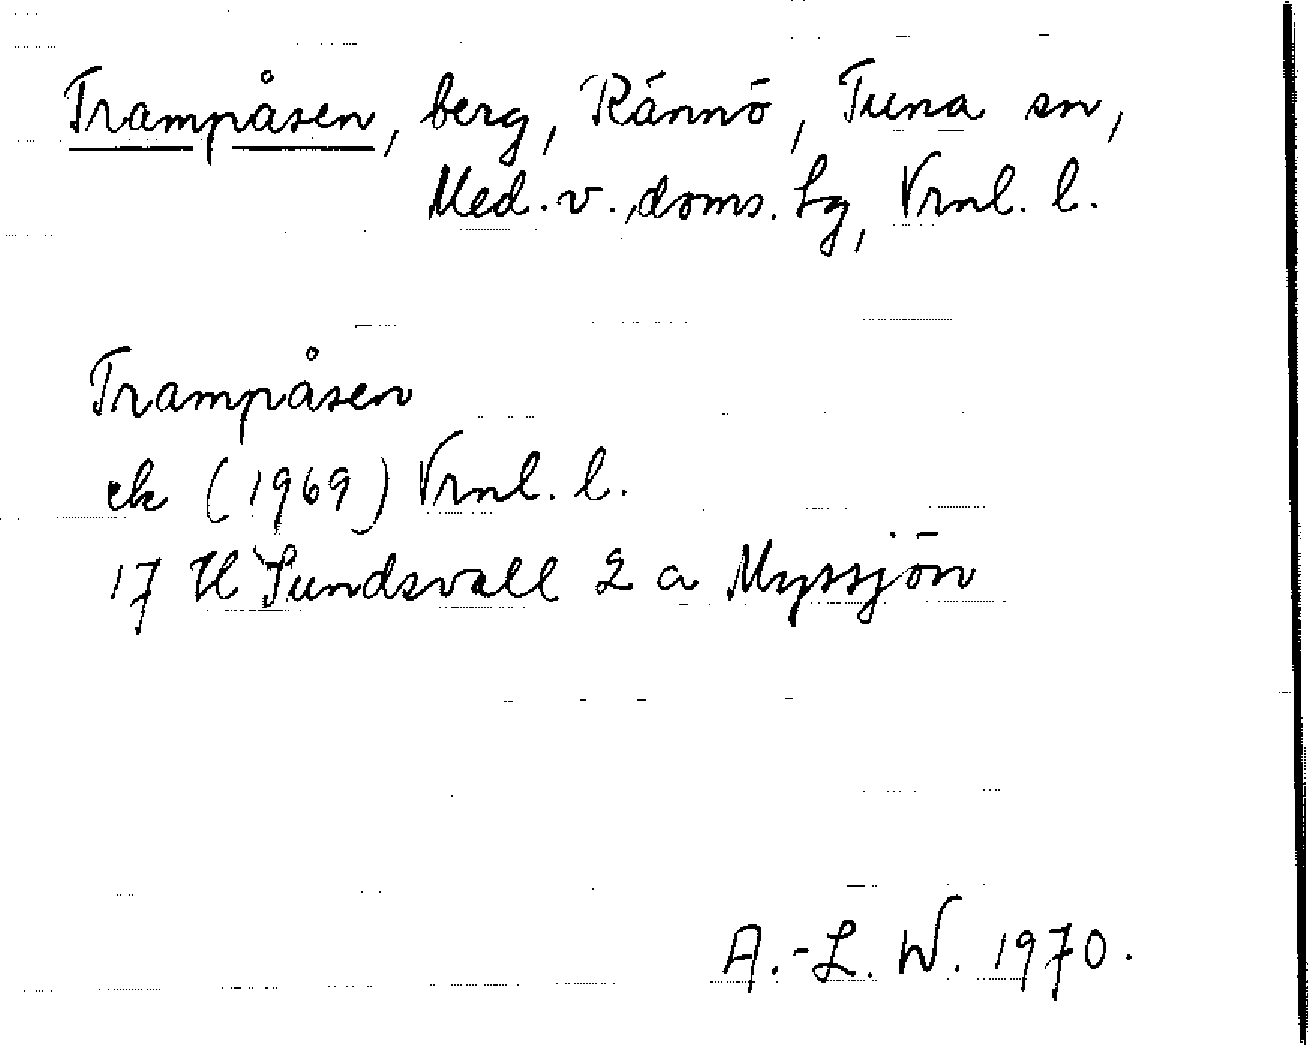 Trampåsen, berg, Ránnö, Tuna sn,
Med. v. doms. lg, Vrnl. l.
Trampåsen
ek (1969) Vrnl. l.
17 H Sundsvall 2 a Myssjön
A.-L. W. 1970.